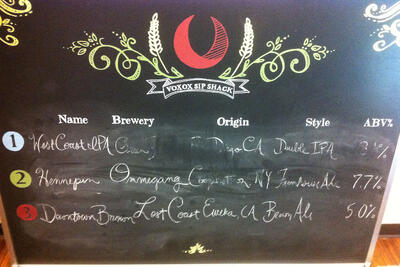 VOXOX SIP SHACK
Name Brewery Origin Style ABV%
1 West Coast IPA Green Diego CA Double IPA
2 Hennepin Ommegang Cooperstown NY Farmhouse Ale 7.7%
3 Downtown Brown Lost Coast Eureka, CA Brown Ale 5.0%